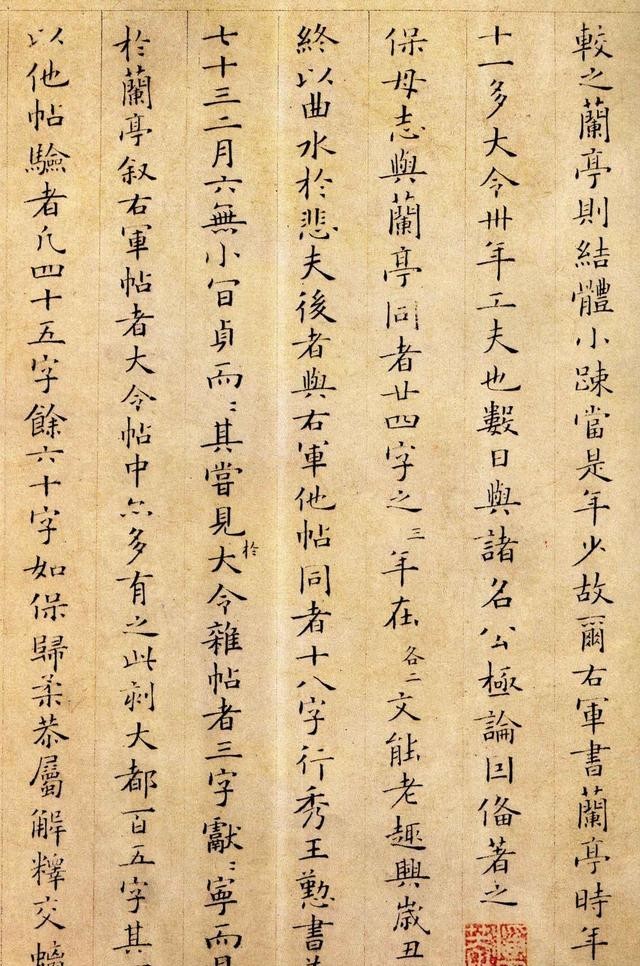 較之蘭亭則結體小踈當是年少故爾右軍書蘭亭時年
十一多大令卅年工夫也數日與諸名公極論囙俻著之
保母志與蘭亭同者廿四字之三年在各二文能老趣興歲丑
終以曲水於悲夫後者與右軍他帖同者十八字行秀王懃書
七十三二月六無小百貞而〻其嘗見於大令雜帖者三字獻〻寧而
於蘭亭叙右軍帖者大令帖中亦多有之此刻大都百五字其
以他帖驗者凡四十五字餘六十字如保歸柔恭屬解釋交